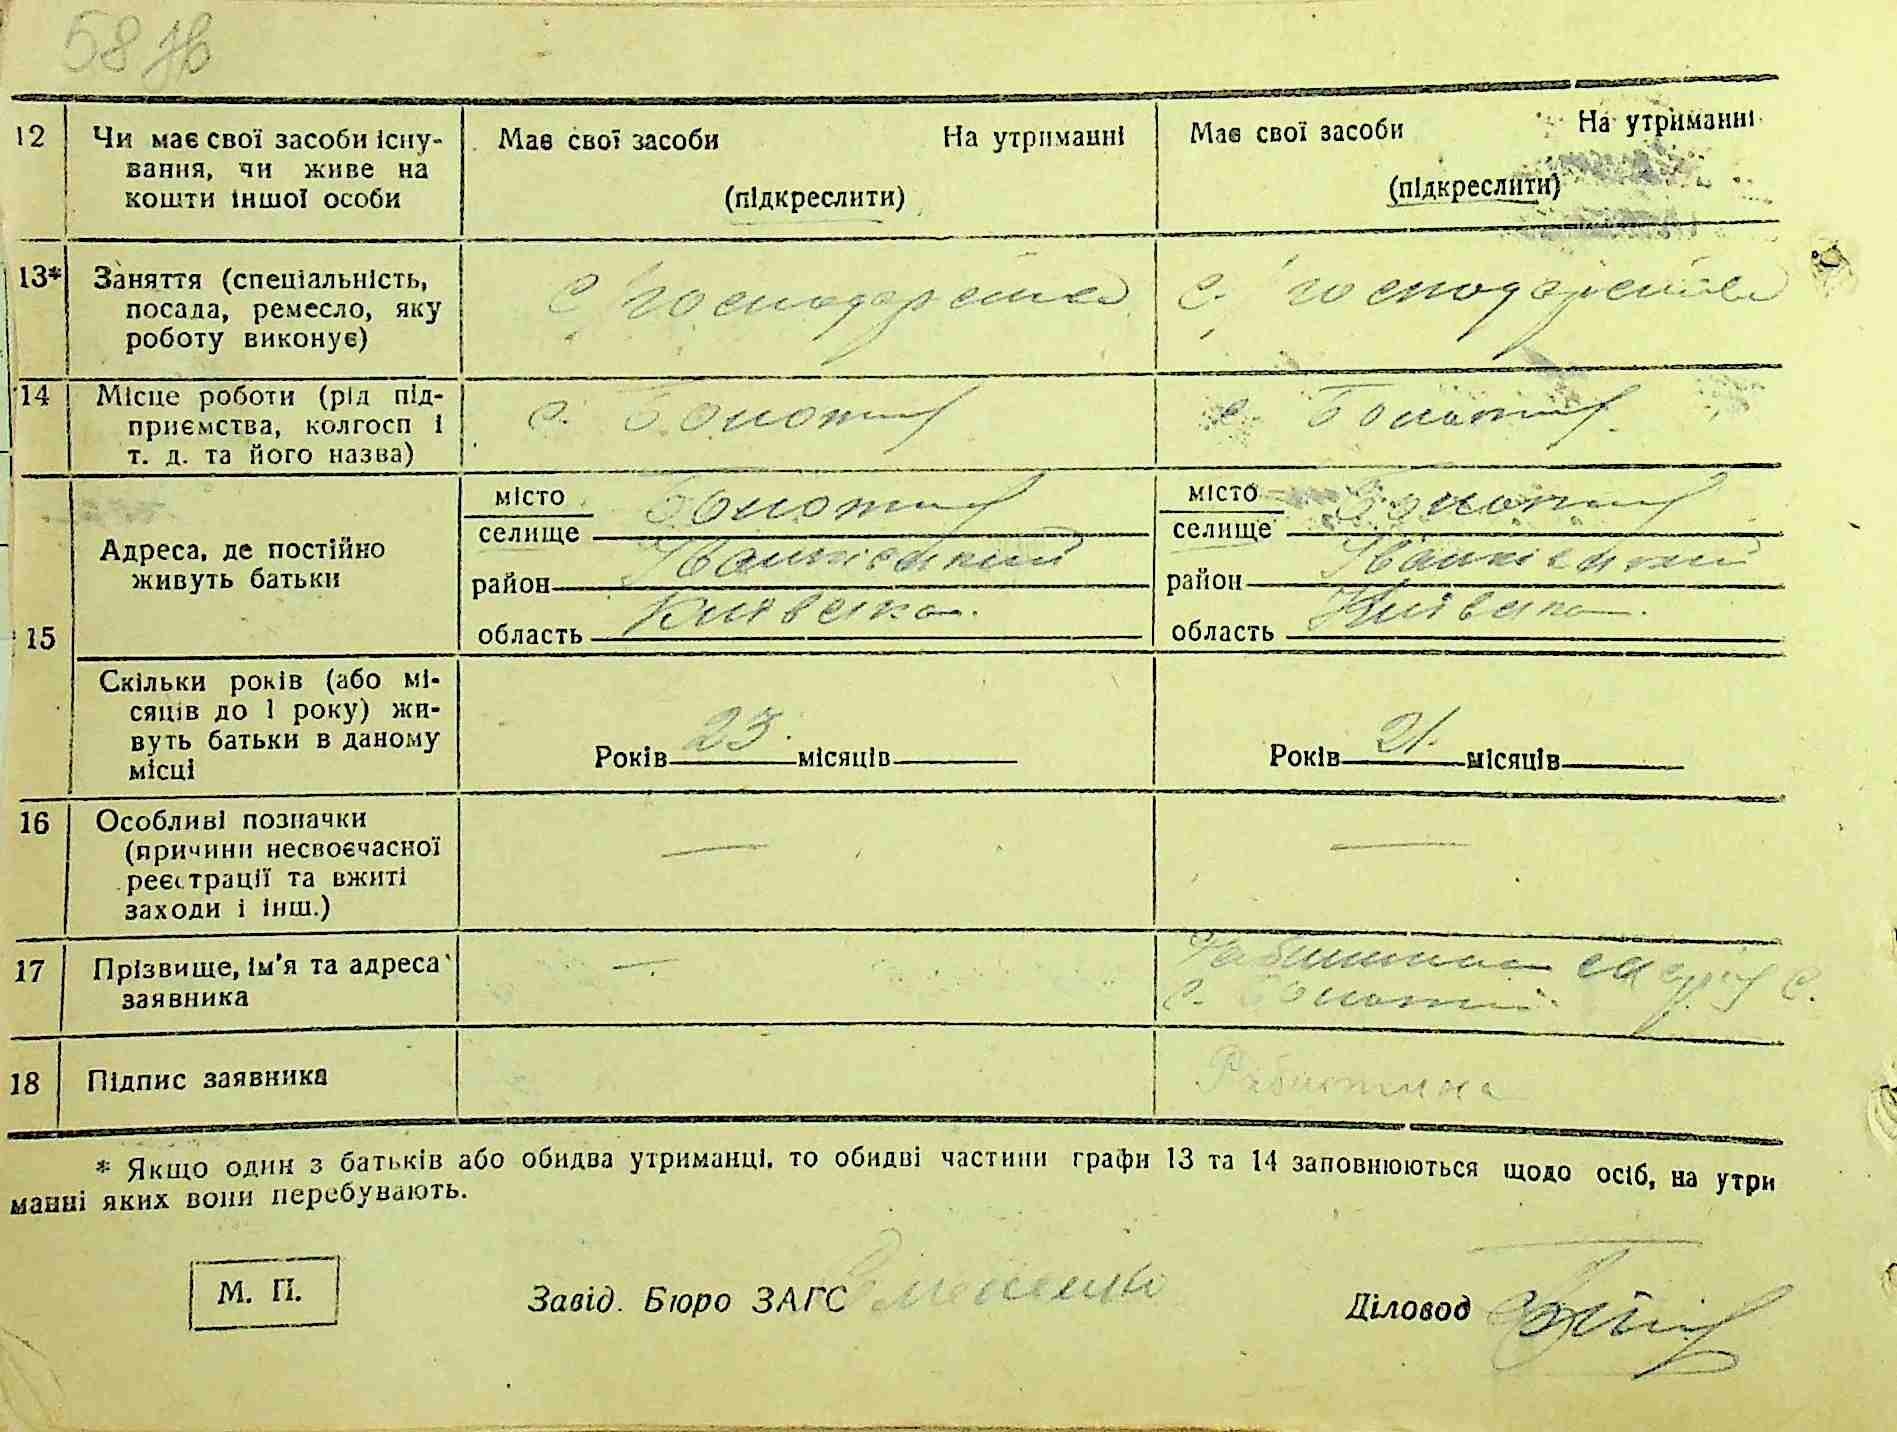 58
12 Чи має свої засоби існу-
вання, чи живе на
кошти іншої особи
Має свої засоби На утриманні
(підкреслити)
Має свої засоби На утриманні
(підкреслити)
13* Заняття (спеціальність,
посада, ремесло, яку
роботу виконує)
с/господарства
с/господарства
14 Місце роботи (рід під-
приємства, колгосп і
т. д. та його назва)
с.
с.
15
Адреса, де постійно
живуть батьки
місто
селище
район Іванківський
область Київська.
місто
селище
район Іванківський
область Київська.
Скільки років (або мі-
сяців до 1 року) жи-
вуть батьки в даному
місці
Років 23. місяців
Років 21. місяців
16 Особливі позначки
(причини несвоєчасної
реєстрації та вжиті
заходи і інш.)
—
—
17 Прізвище, ім'я та адреса
заявника
—.
с.
18 Підпис заявника
* Якщо один з батьків або обидва утриманці, то обидві частини графи 13 та 14 заповнюються щодо осіб, на утри
манні яких вони перебувають.
М. П.
Завід. Бюро ЗАГС
Діловод